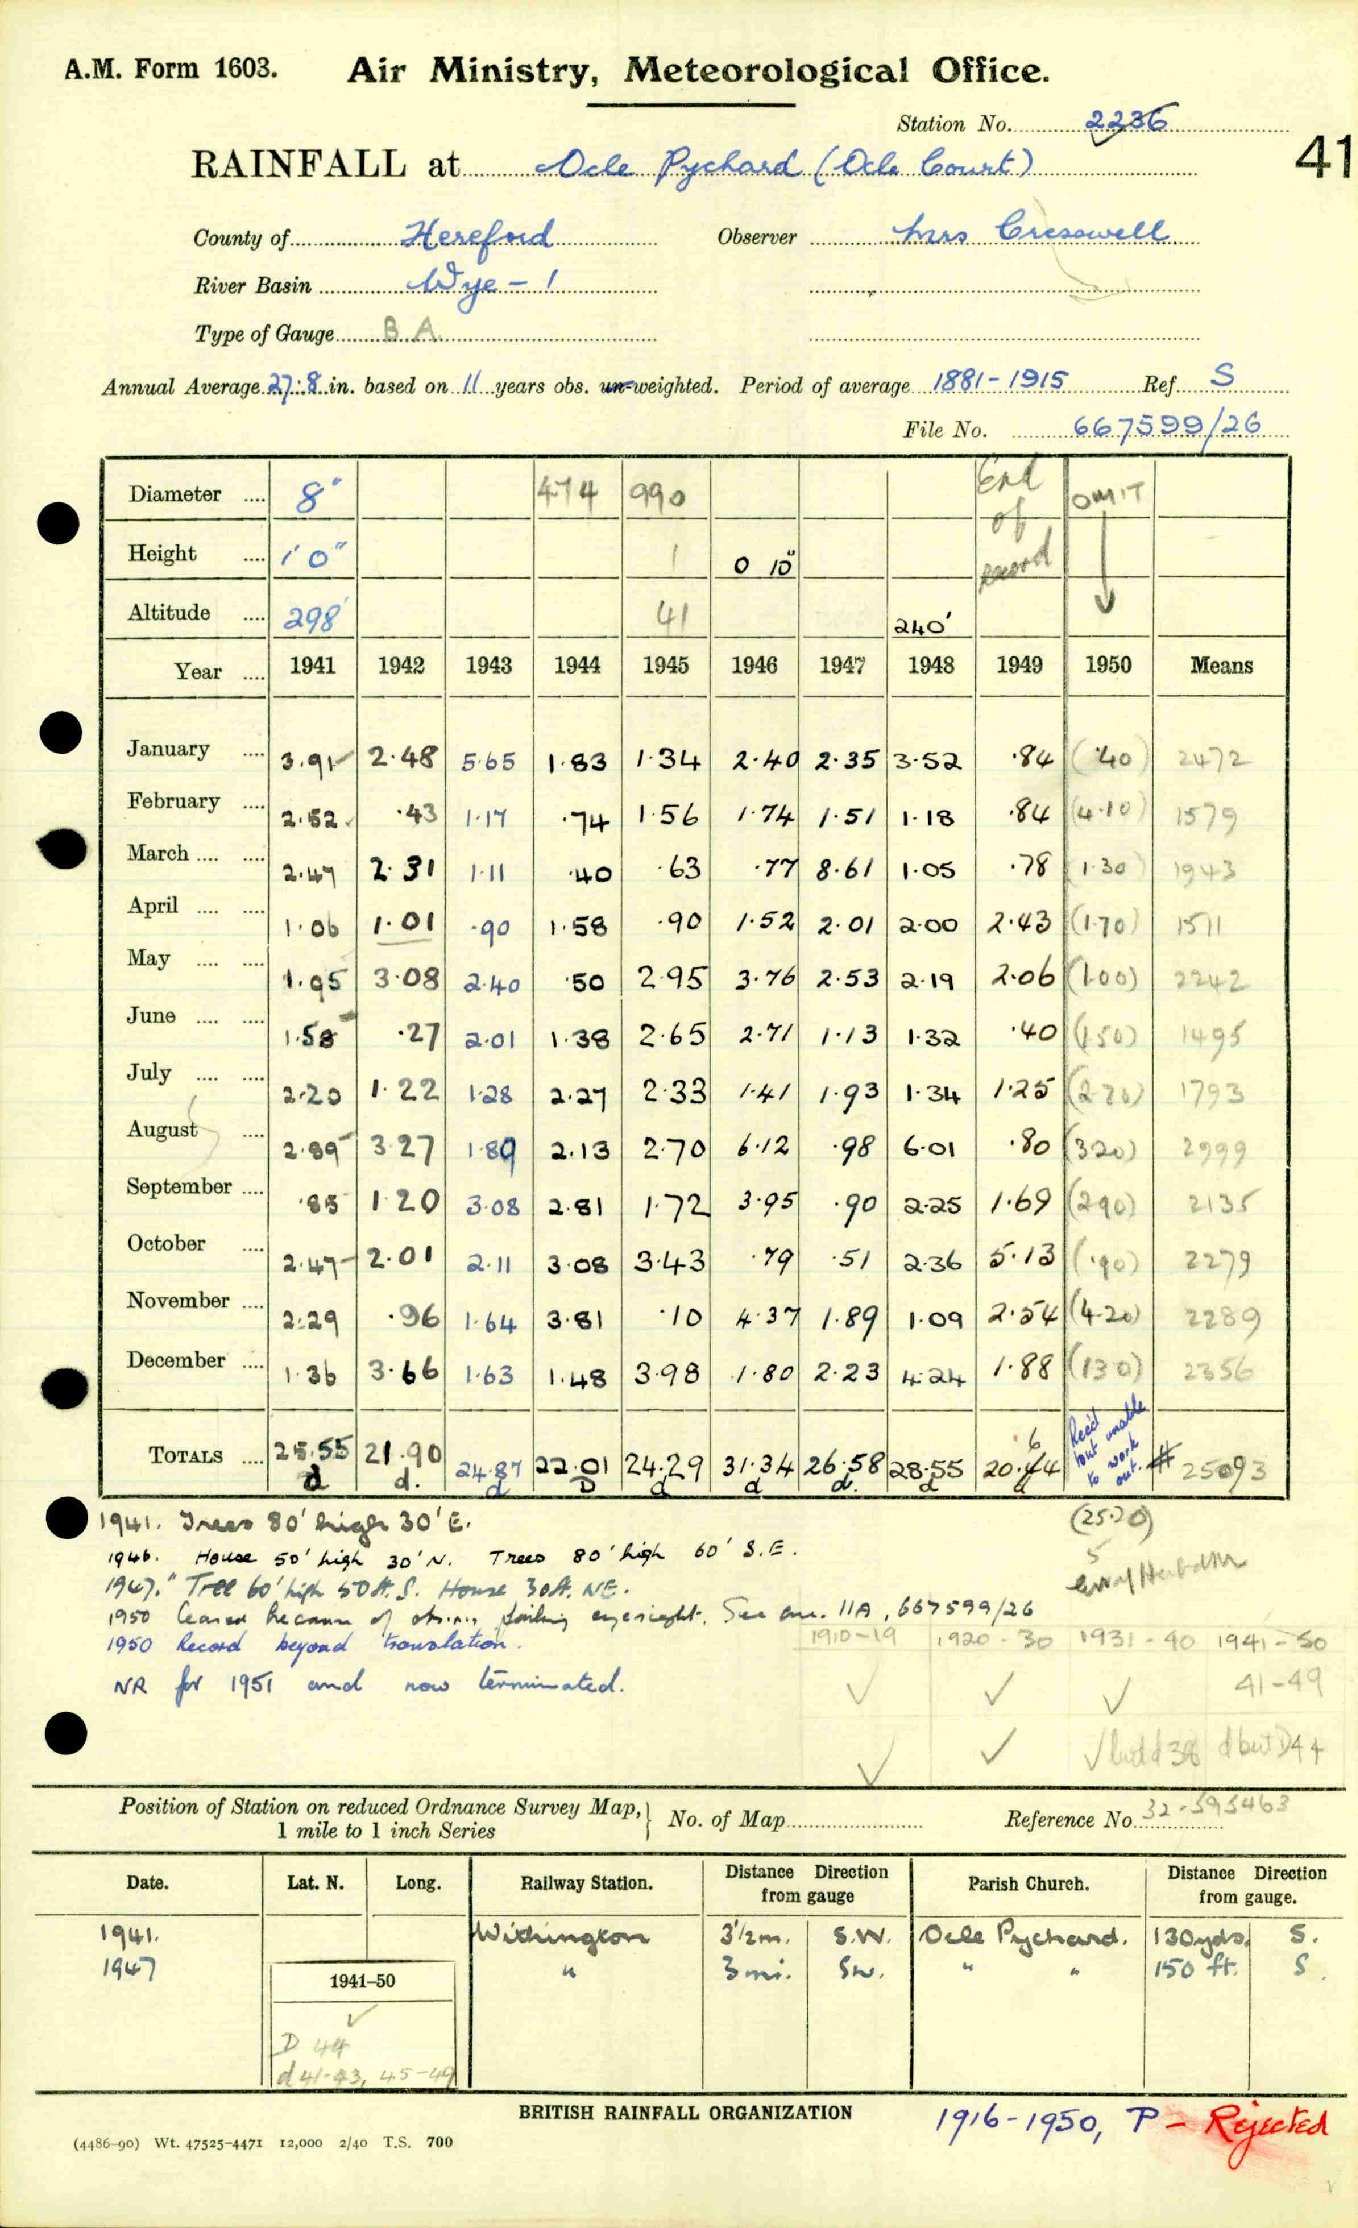 A.M. Form 1603. Air Ministry, Meteorological Office.
Station No. 2236
41
RAINFALL at Ocle Pychard (Ocle Court)
County of Hereford Observer Mrs Cresswell
River Basin Wye - 1
Type of Gauge B A.
Annual Average 27.8 in. based on 11 years obs. un-weighted. Period of average 1881-1915 Ref. S
File No. 667599/26
Diameter .... 8" 474 990 End of record OMIT
Height .... 1' 0" 1 0 10"
Altitude .... 298' 41 240'
Year .... 1941 1942 1943 1944 1945 1946 1947 1948 1949 1950 Means
January .... 3.91 2.48 5.65 1.83 1.34 2.40 2.35 3.52 .84 (.40) 2472
February .... 2.52 .43 1.17 .74 1.56 1.74 1.51 1.18 .84 (4.10) 1579
March .... .... 2.47 2.31 1.11 .40 .63 .77 8.61 1.05 .78 (1.30) 1943
April .... .... 1.06 1.01 .90 1.58 .90 1.52 2.01 2.00 2.43 (1.70) 1511
May .... .... 1.95 3.08 2.40 .50 2.95 3.76 2.53 2.19 2.06 (1.00) 2242
June .... .... 1.58 .27 2.01 1.38 2.65 2.71 1.13 1.32 .40 (1.50) 1495
July .... .... 2.20 1.22 1.28 2.27 2.33 1.41 1.93 1.34 1.25 (2.70) 1793
August .... 2.89 3.27 1.89 2.13 2.70 6.12 .98 6.01 .80 (3.20) 2999
September .... .85 1.20 3.08 2.81 1.72 3.95 .90 2.25 1.69 (2.90) 2135
October .... 2.47 2.01 2.11 3.08 3.43 .79 .51 2.36 5.13 (.90) 2279
November .... 2.29 .96 1.64 3.81 .10 4.37 1.89 1.09 2.54 (4.20) 2289
December .... 1.36 3.66 1.63 1.48 3.98 1.80 2.23 4.24 1.88 (1.30) 2356
Rec'd but unable to work out.
TOTALS .... 25.55 21.90 24.87 22.01 24.29 31.34 26.58 28.55 20.44 25093
d d. d D d d d. d d
6
(25.20)
5
1941. Trees 80' high 30' E.
1946. House 50' high 30' N. Trees 80' high 60' S.E.
1947. Tree 60' high 50ft. S. House 30ft. NE.
1950 Ceased because of failing eyesight. See 11A, 667599/26
1950 Record beyond translation.
NR for 1951 and now terminated.
1910-19 1920-30 1931-40 1941-50
41-49
but d 38 d but D44
Position of Station on reduced Ordnance Survey Map, 1 mile to 1 inch Series No. of Map Reference No. 32-595463
Date. Lat. N. Long. Railway Station. Distance Direction from gauge Parish Church. Distance Direction from gauge.
1941. Withington 3½m. S.W. Ocle Pychard. 130yds. S.
1947 " 3mi. SW. " " 150 ft. S.
1941-50
D 44
d 41-43, 45-49
BRITISH RAINFALL ORGANIZATION
1916-1950, P - Rejected
(4486-90) Wt. 47525-4471 12,000 2/40 T.S. 700